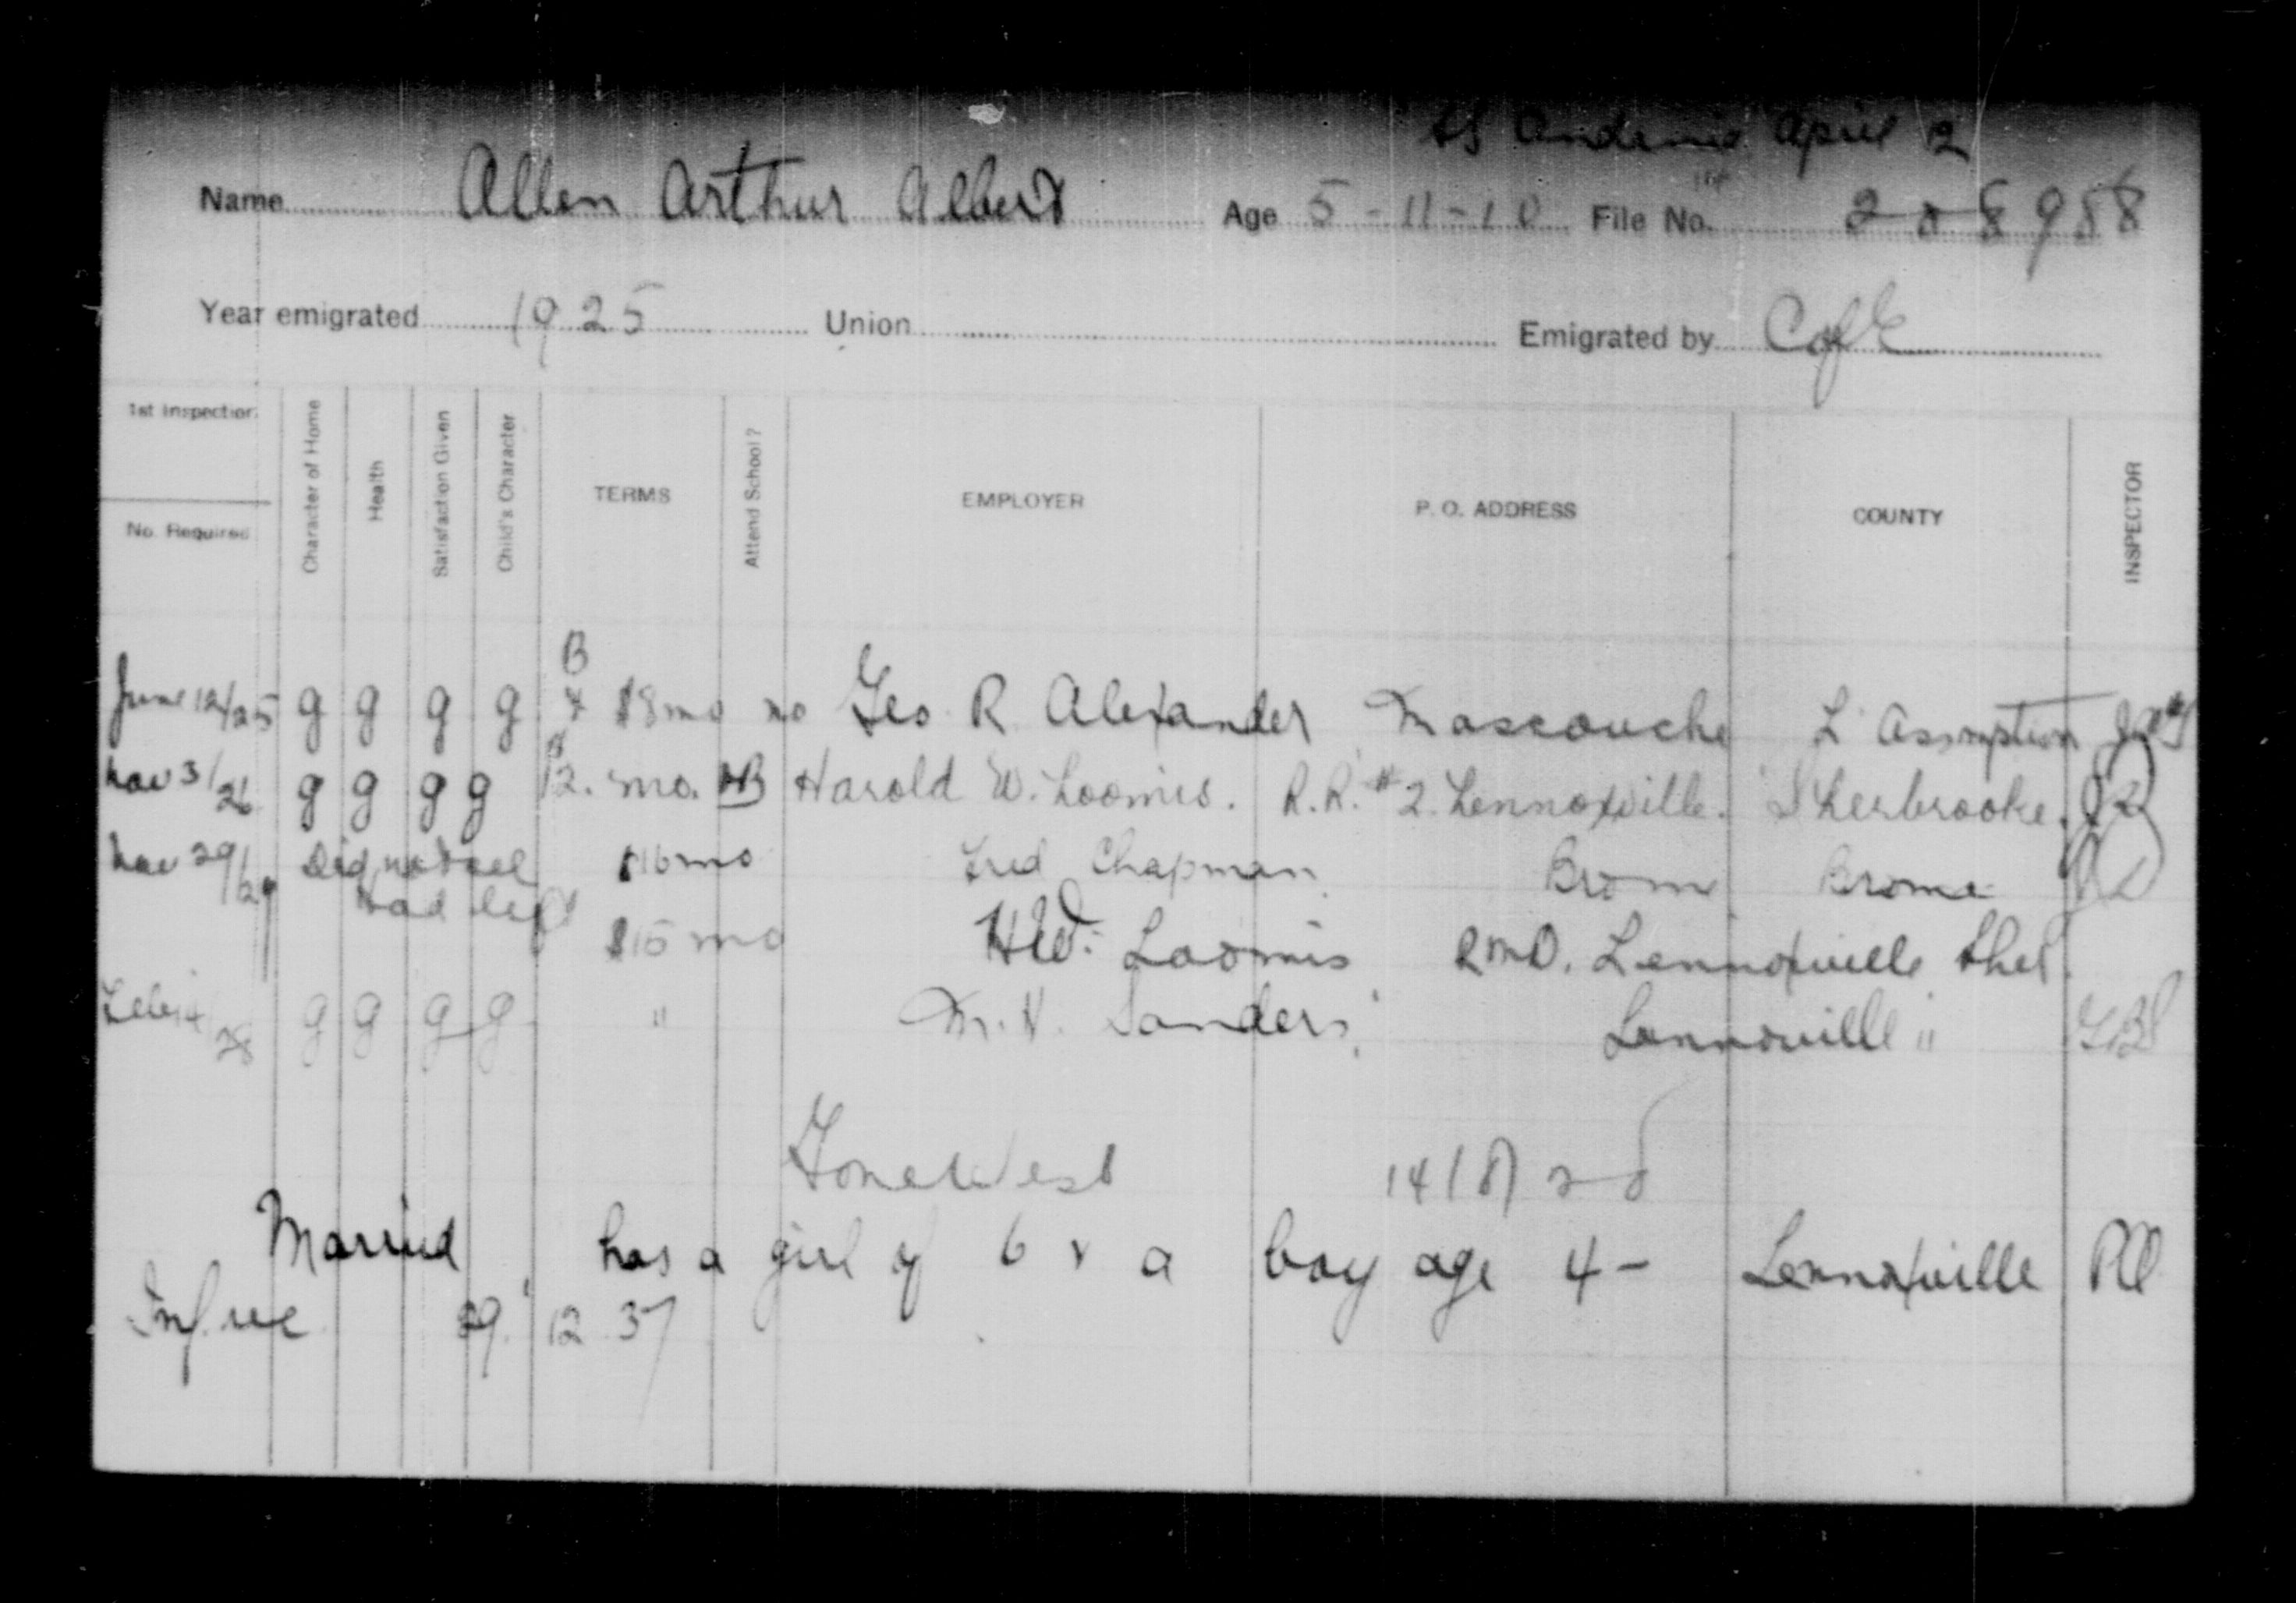 SS Andania April 12
Name Allen Arthur Albert Age 5-11-10 File No. 208988
Year emigrated 1925 Union Emigrated by C of E
1st Inspection
No. Required
Character of Home
Health
Satisfaction Given
Child's Character
TERMS
Attend School?
EMPLOYER
P. O. ADDRESS
COUNTY
INSPECTOR
B
June 12/25 g g g g + $8 mo no Geo R. Alexander Mascouche L'Assomption
Nov 3/26 g g g g 12. mo. Harold W. Loomis. R.R. #2. Lennoxville. Sherbrooke.
Nov 29/ Did not see $16 mo Fred Chapman Brome Brome
Had left
$15 mo H.W. Loomis Lennoxville Sher.
Feb 14/28 g g g g " Sanders Lennoxville "
Gone West
Married has a girl of 6 & a boy age 4 - Lennoxville
Inf. rec 29. 12 37